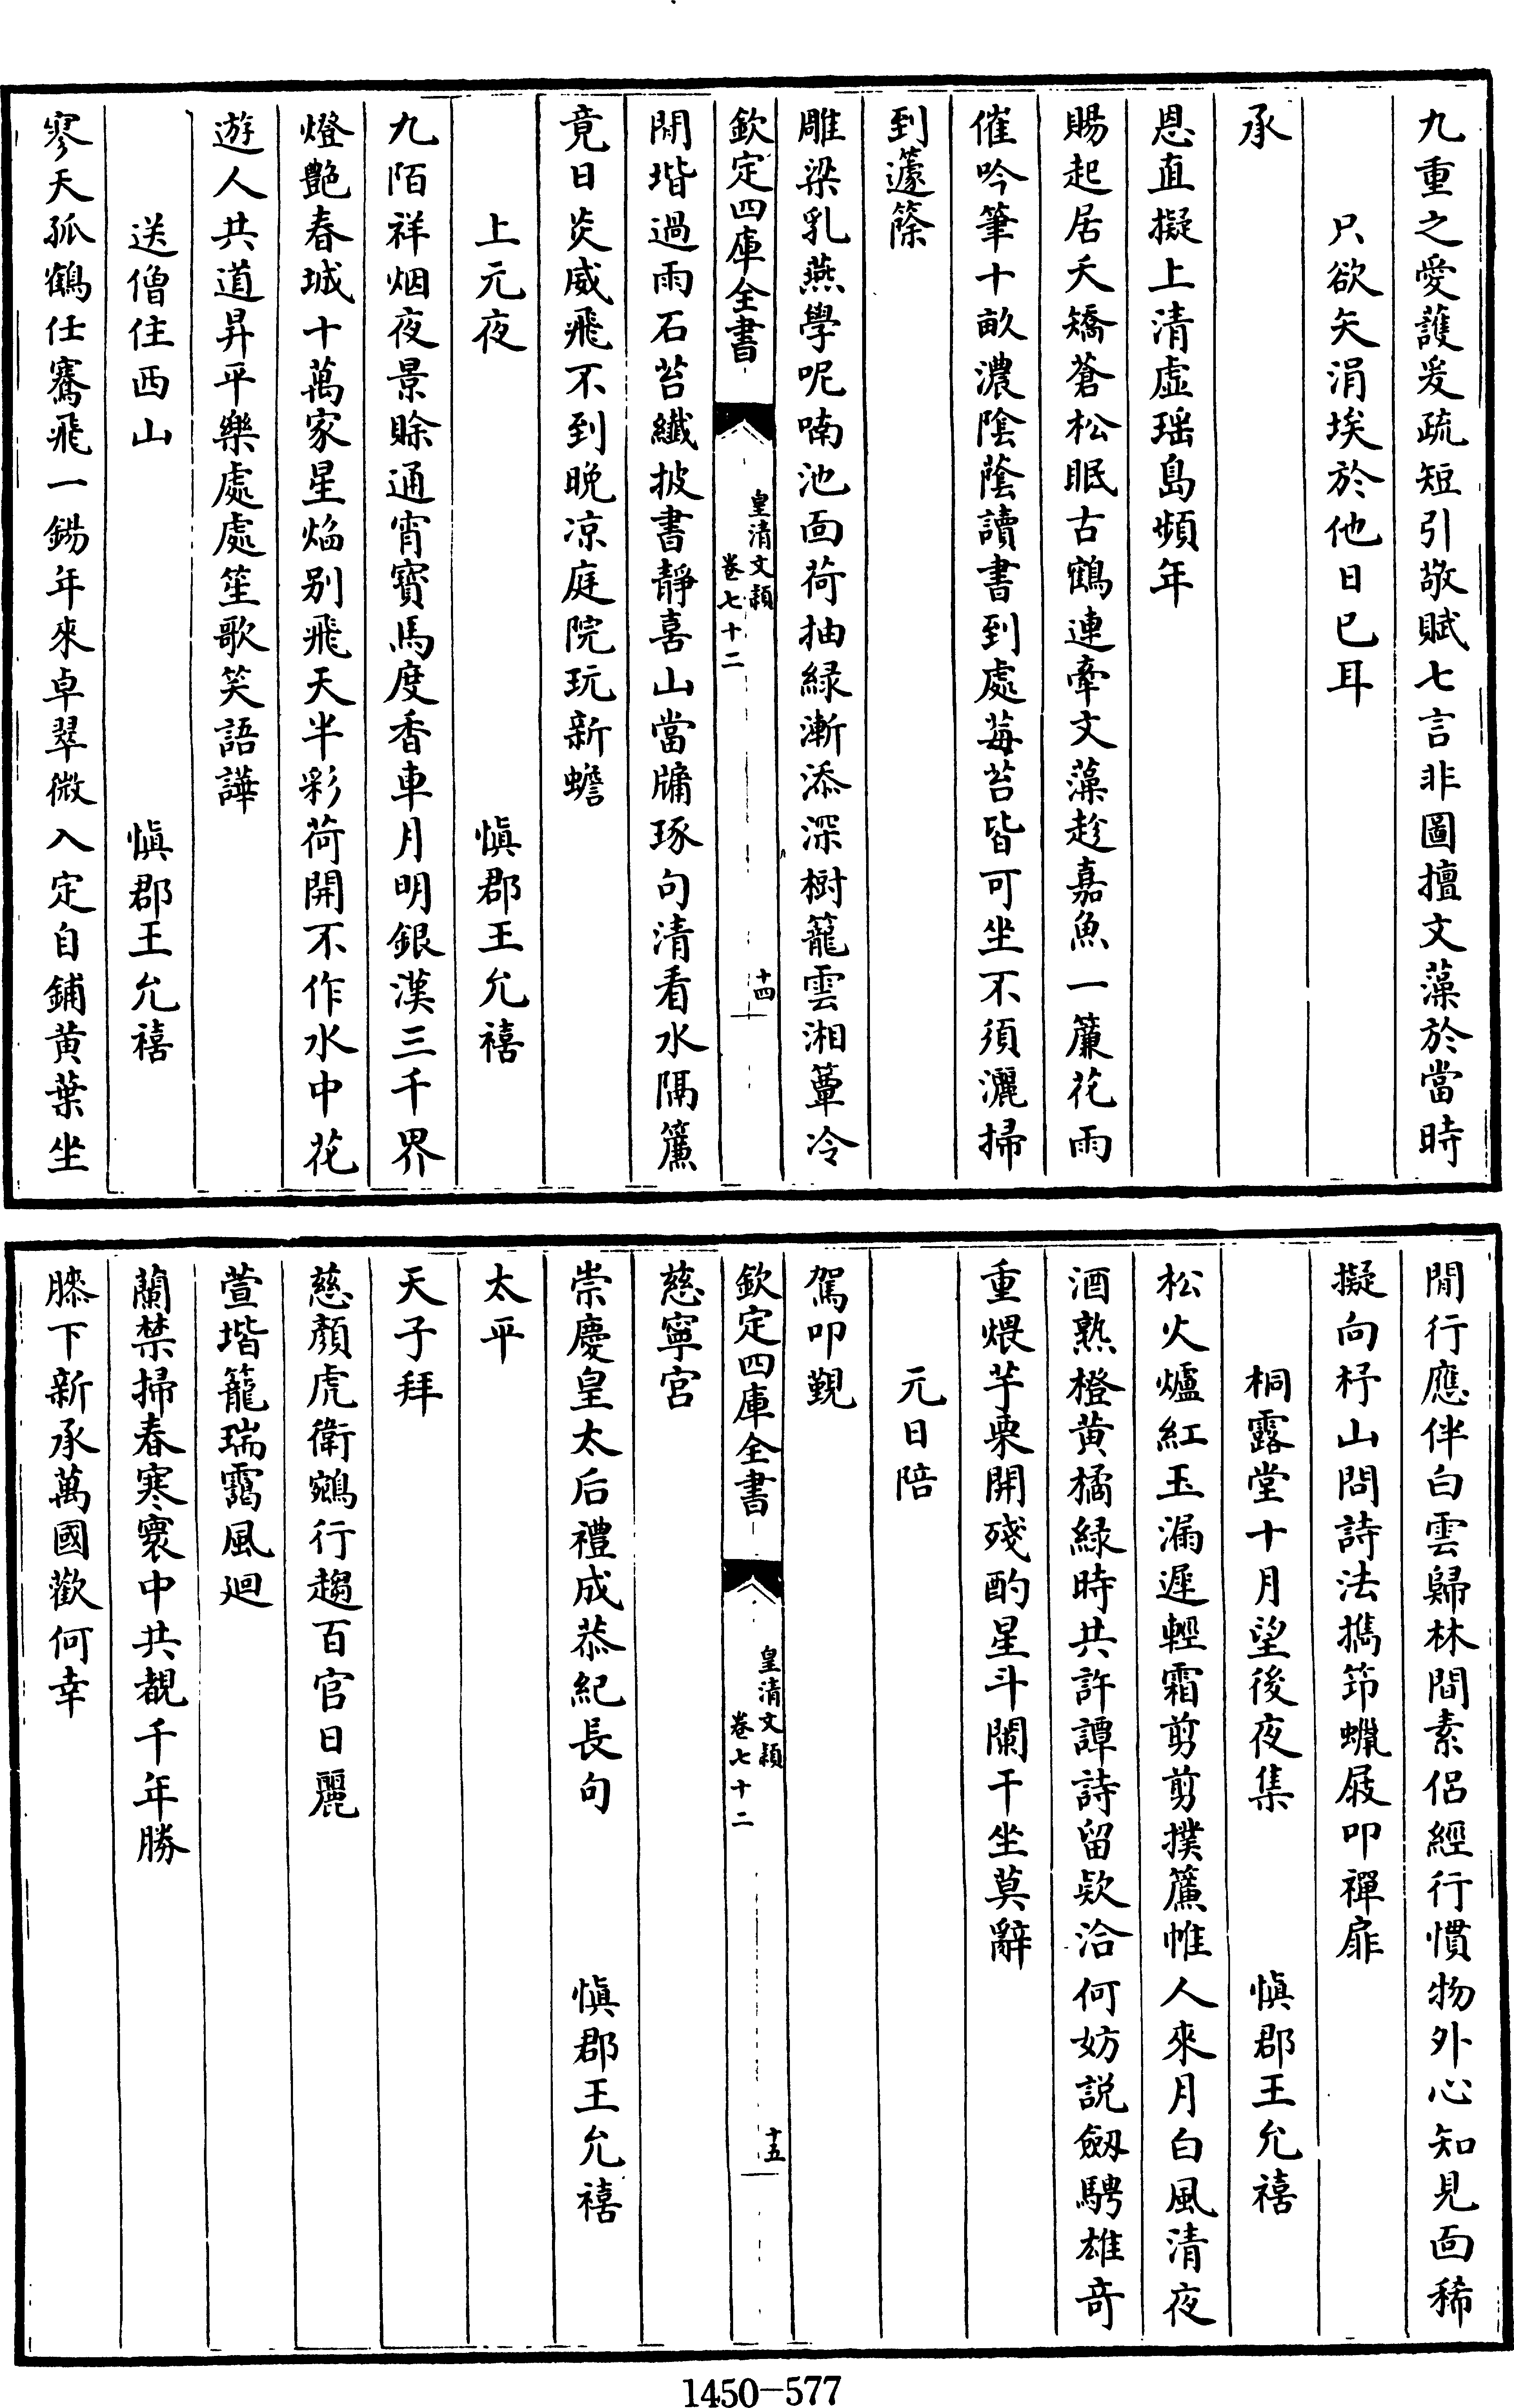 九重之愛護爰疏短引敬賦七言非圖擅文藻於當時
只欲矢涓埃於他日已耳
承
恩直擬上清虛瑶島頻年
賜起居夭矯蒼松眠古鶴連牽文藻趁嘉魚一簾花雨
催吟筆十畝濃陰蔭讀書到處莓苔皆可坐不須灑掃
到籧篨
雕梁乳燕學呢喃池面荷抽緑漸添深樹籠雲湘簟冷
欽定四庫全書
皇清文穎
卷七十二
十四
閒堦過雨石苔纖披書靜喜山當牖琢句清看水隔簾
竟日炎威飛不到晚凉庭院玩新蟾
上元夜 慎郡王允禧
九陌祥烟夜景賒通宵寳馬度香車月明銀漢三千界
燈艶春城十萬家星焰别飛天半彩荷開不作水中花
遊人共道昇平樂處處笙歌笑語譁
送僧住西山 慎郡王允禧
寥天孤鶴任騫飛一錫年來卓翠微入定自鋪黄葉坐
閒行應伴白雲歸林間素侣經行慣物外心知見面稀
擬向杼山問詩法攜笻蠟屐叩禪扉
桐露堂十月望後夜集 慎郡王允禧
松火爐紅玉漏遲輕霜剪剪撲簾帷人來月白風清夜
酒熟橙黄橘緑時共許譚詩留欵洽何妨説劔騁雄奇
重煨芋栗開殘酌星斗闌干坐莫辭
元日陪
駕叩覲
欽定四庫全書
皇清文穎
卷七十二
十五
慈寧宮
崇慶皇太后禮成恭紀長句 慎郡王允禧
太平
天子拜
慈顔虎衛鵷行趨百官日麗
萱堦籠瑞靄風廻
蘭禁掃春寒寰中共覩千年勝
膝下新承萬國歡何幸
1450-577